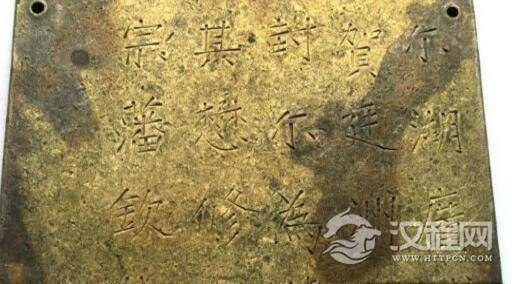 尔湖廣
賀廷
封尔為
其懋修
宗藩欽
汉程网
WWW.HTTPCN.COM